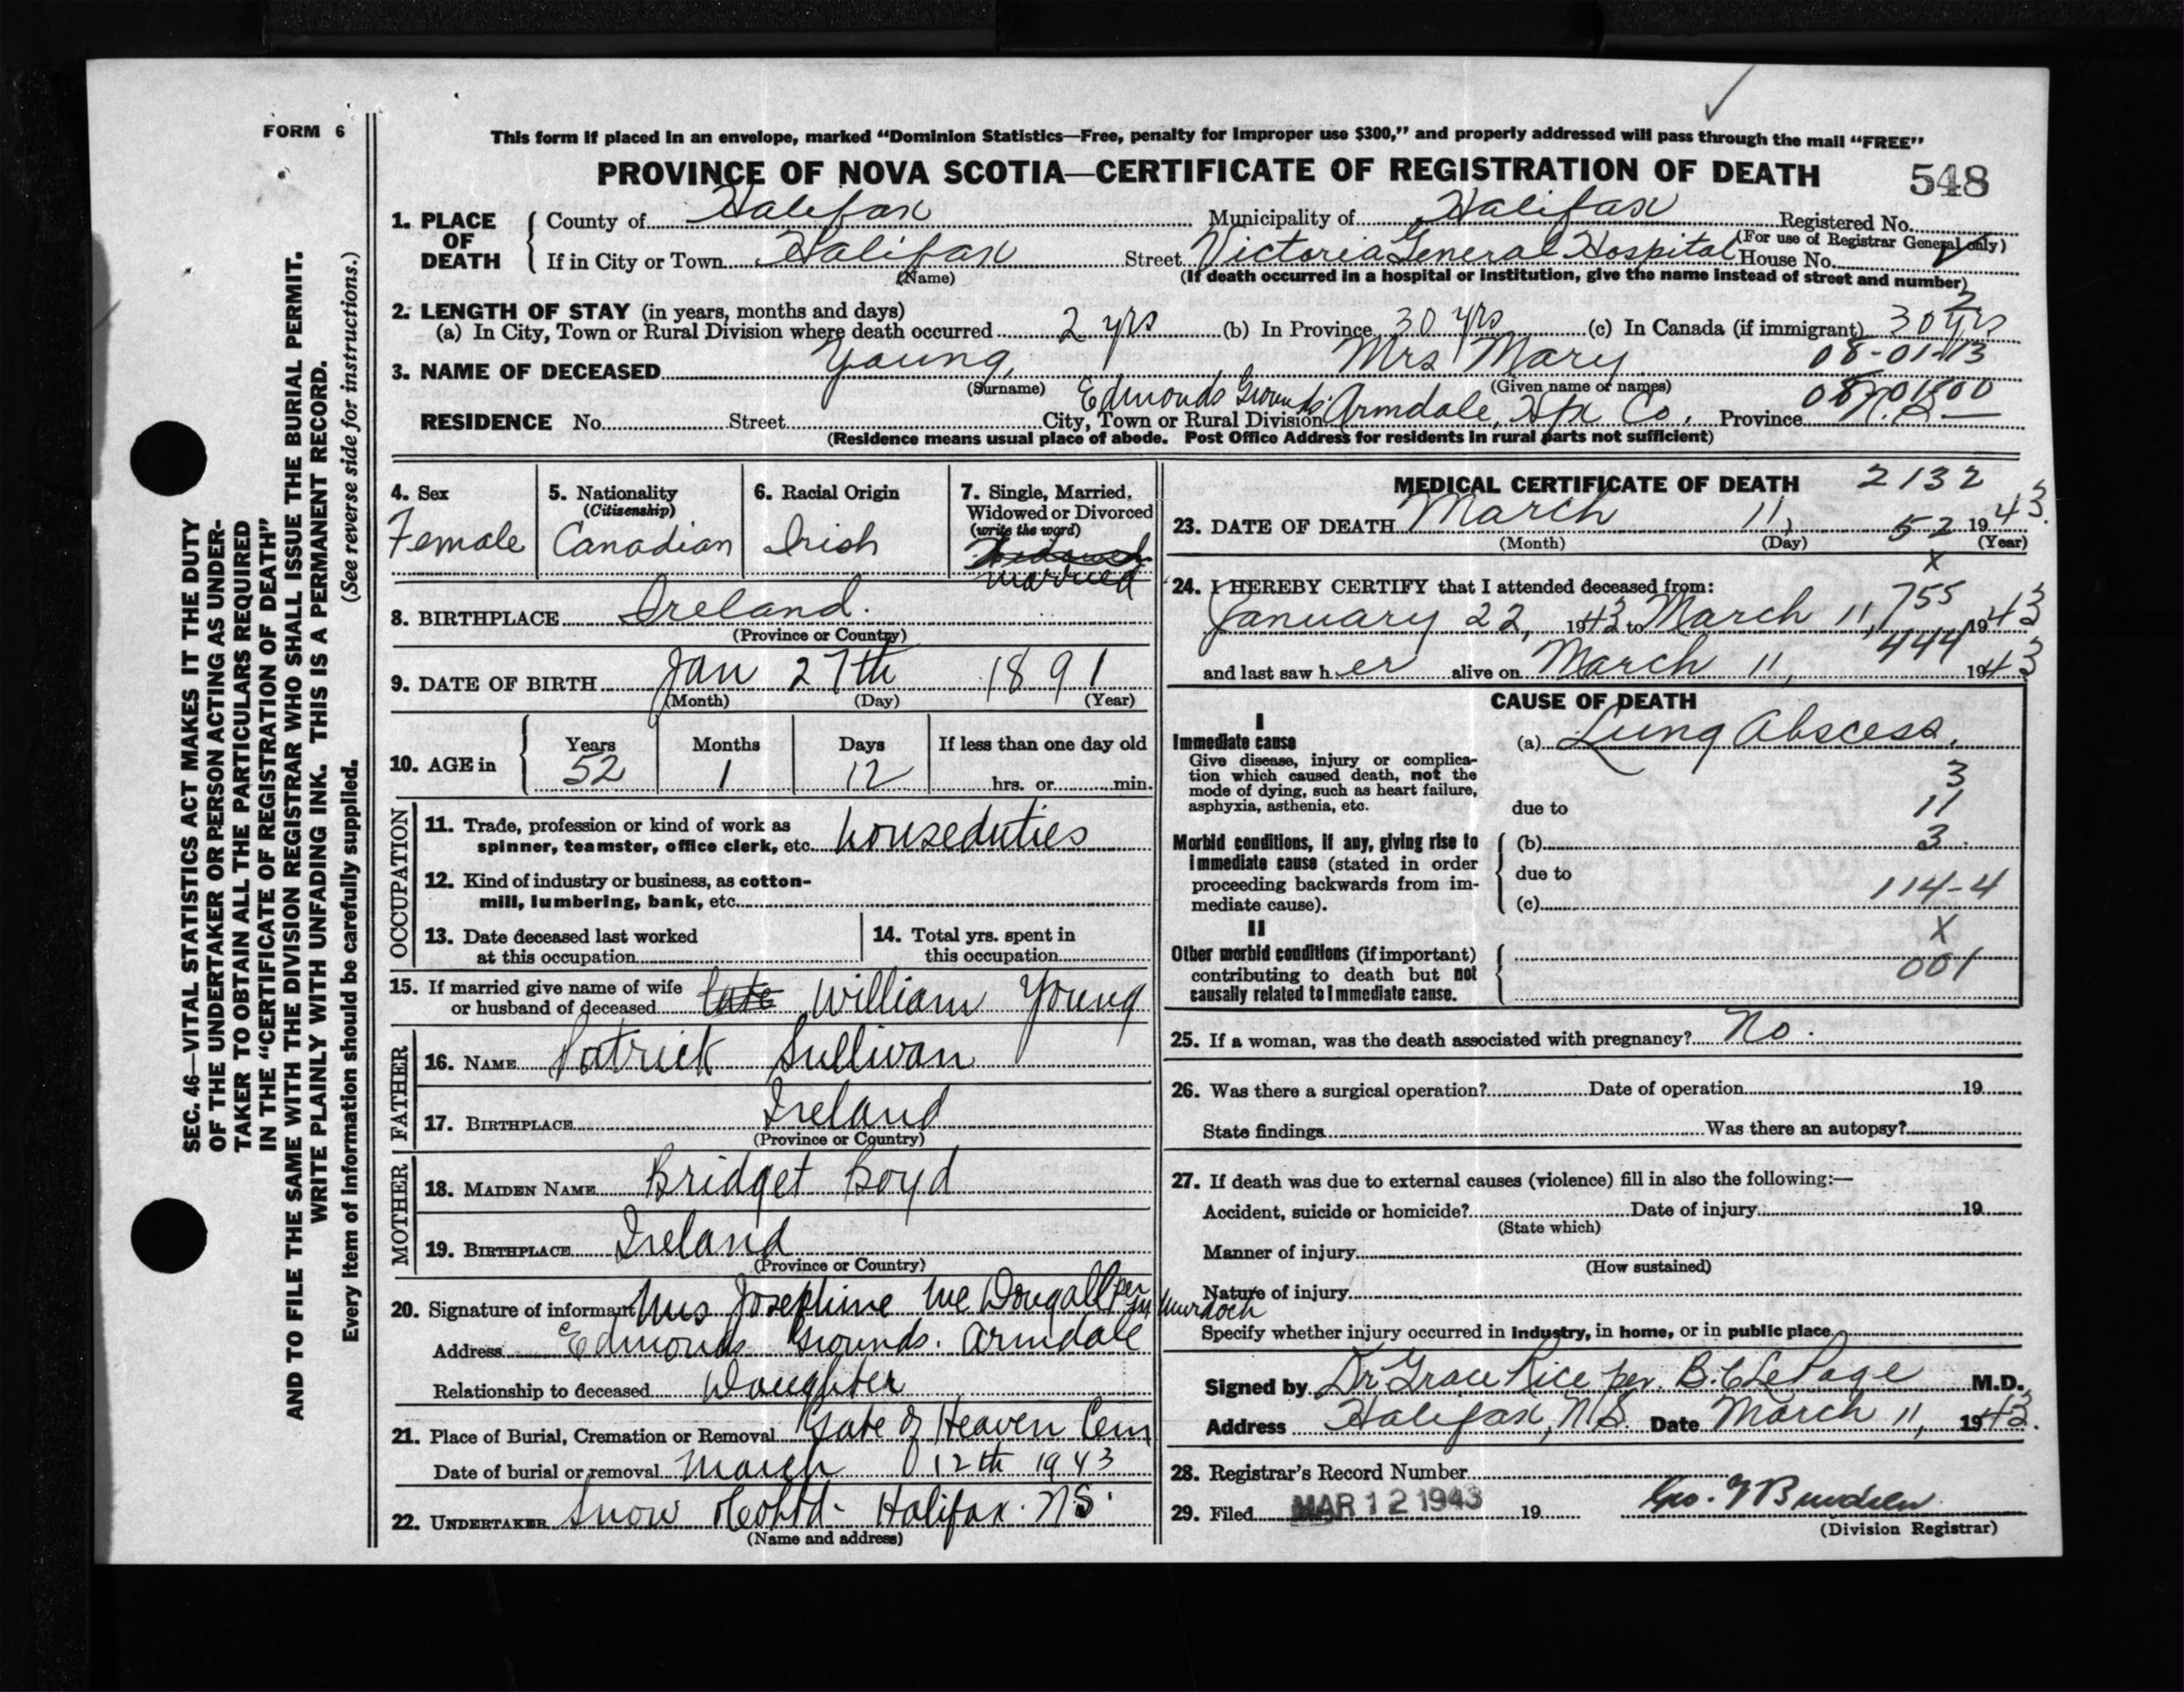 FORM 6
This form if placed in an envelope, marked “Dominion Statistics—Free, penalty for improper use $300,” and properly addressed will pass through the mail “FREE”
PROVINCE OF NOVA SCOTIA—CERTIFICATE OF REGISTRATION OF DEATH
548
SEC. 46—VITAL STATISTICS ACT MAKES IT THE DUTY
OF THE UNDERTAKER OR PERSON ACTING AS UNDER-
TAKER TO OBTAIN ALL THE PARTICULARS REQUIRED
IN THE “CERTIFICATE OF REGISTRATION OF DEATH”
AND TO FILE THE SAME WITH THE DIVISION REGISTRAR WHO SHALL ISSUE THE BURIAL PERMIT.
WRITE PLAINLY WITH UNFADING INK. THIS IS A PERMANENT RECORD.
Every item of information should be carefully supplied. (See reverse side for instructions.)
1. PLACE OF DEATH
County of Halifax Municipality of Halifax Registered No.
(For use of Registrar General only)
If in City or Town Halifax Street Victoria General Hospital House No.
(Name) (If death occurred in a hospital or institution, give the name instead of street and number)
2. LENGTH OF STAY (in years, months and days) 2
(a) In City, Town or Rural Division where death occurred 2 yrs (b) In Province 30 yrs (c) In Canada (if immigrant) 30 yrs
3. NAME OF DECEASED Young, Mrs Mary 08-01-13
(Surname) (Given name or names)
RESIDENCE No. Street City, Town or Rural Division Edmonds Grounds Armdale, Hfx Co, Province N.S.
(Residence means usual place of abode. Post Office Address for residents in rural parts not sufficient)
4. Sex
Female
5. Nationality
(Citizenship)
Canadian
6. Racial Origin
Irish
7. Single, Married,
Widowed or Divorced
(write the word)
married
8. BIRTHPLACE Ireland.
(Province or Country)
9. DATE OF BIRTH Jan 27th 1891
(Month) (Day) (Year)
10. AGE in
Years Months Days If less than one day old
52 1 12 hrs. or min.
OCCUPATION
11. Trade, profession or kind of work as
spinner, teamster, office clerk, etc. houseduties
12. Kind of industry or business, as cotton-
mill, lumbering, bank, etc.
13. Date deceased last worked
at this occupation
14. Total yrs. spent in
this occupation
15. If married give name of wife
or husband of deceased late William Young
FATHER
16. NAME Patrick Sullivan
17. BIRTHPLACE Ireland
(Province or Country)
MOTHER
18. MAIDEN NAME Bridget Boyd
19. BIRTHPLACE Ireland
(Province or Country)
20. Signature of informant Mrs Josephine McDougall per Murdoch
Address Edmonds Grounds. Armdale
Relationship to deceased Daughter
21. Place of Burial, Cremation or Removal Gate of Heaven Cem
Date of burial or removal March 12th 1943
22. UNDERTAKER Snow & Co Ltd - Halifax. NS.
(Name and address)
MEDICAL CERTIFICATE OF DEATH 2132
23. DATE OF DEATH March 11, 52 1943.
(Month) (Day) (Year)
x
24. I HEREBY CERTIFY that I attended deceased from:
755
January 22, 1943 to March 11, 1943
444
and last saw her alive on March 11, 1943
CAUSE OF DEATH
I
Immediate cause
Give disease, injury or complica-
tion which caused death, not the
mode of dying, such as heart failure,
asphyxia, asthenia, etc.
(a) Lung Abscess.
3
due to 11
Morbid conditions, if any, giving rise to
immediate cause (stated in order
proceeding backwards from im-
mediate cause).
(b) 3
due to
114-4
(c)
II
X
Other morbid conditions (if important)
contributing to death but not
causally related to immediate cause.
001
25. If a woman, was the death associated with pregnancy? No.
26. Was there a surgical operation? Date of operation 19
State findings Was there an autopsy?
27. If death was due to external causes (violence) fill in also the following:—
Accident, suicide or homicide? Date of injury 19
(State which)
Manner of injury
(How sustained)
Nature of injury
Specify whether injury occurred in industry, in home, or in public place
Signed by Dr Grace Rice per. B.C LePage M.D.
Address Halifax, N.S. Date March 11, 1943.
28. Registrar's Record Number
29. Filed MAR 12 1943 19 Geo.
(Division Registrar)